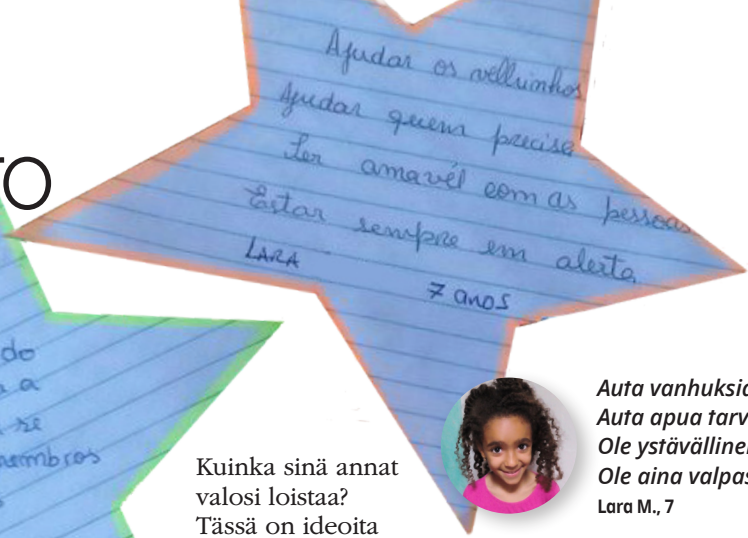 TO
Ajudar os velhinhos
Ajudar quem precisa
Ser amavél com as pessoas
Estar sempre em alerta
LARA 7 anos
do
a
re
membros
Kuinka sinä annat
valosi loistaa?
Tässä on ideoita
Auta vanhuksia
Auta apua tarv
Ole ystävälline
Ole aina valpas
Lara M., 7